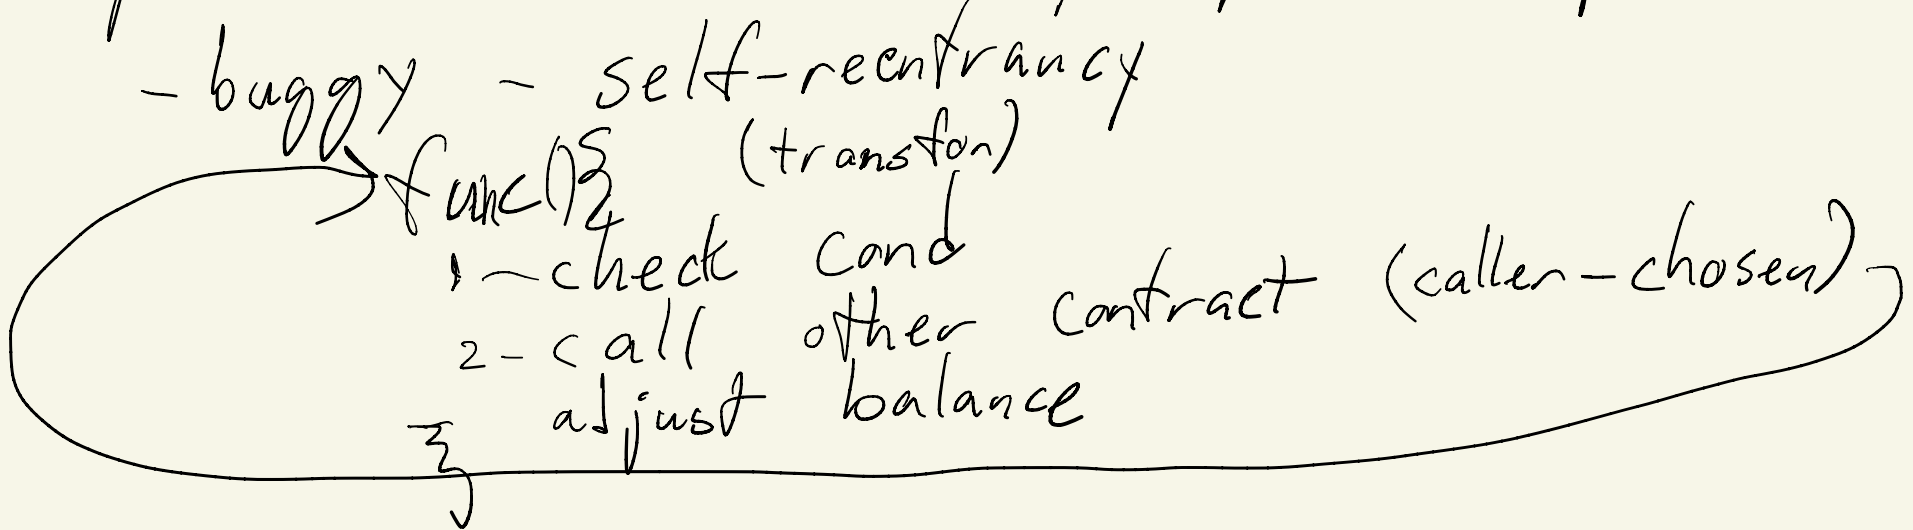 - buggy - self-reentrancy
func(){ (transfor)
1 - check cond
2 - call other contract (caller-chosen)
adjust balance
}